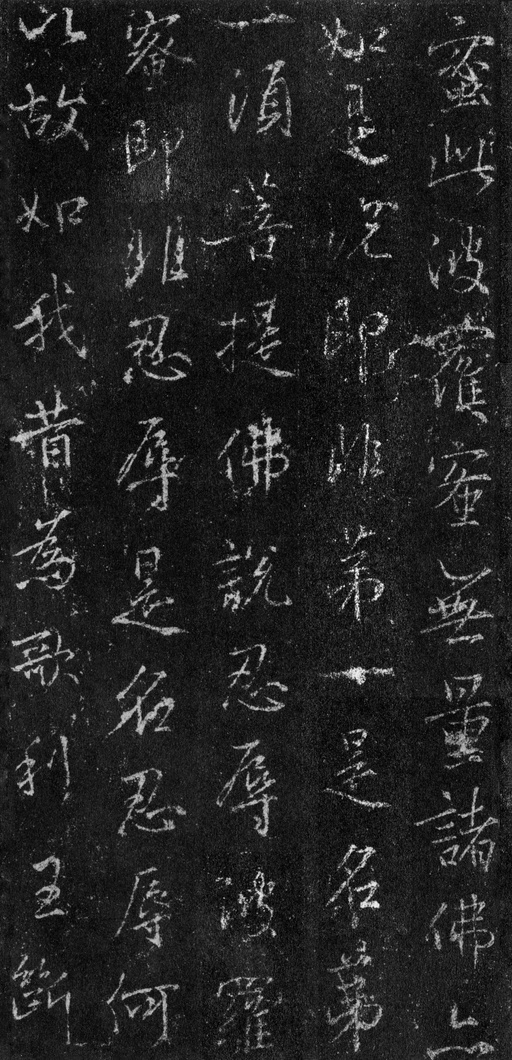 蜜此波羅蜜無量諸佛亦
如是说即非第一是名第
一須菩提佛說忍辱波羅
蜜即非忍辱是名忍辱何
以故如我昔為歌利王斷